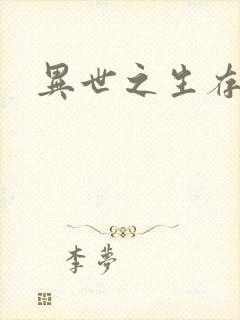 異世之生存
李夢